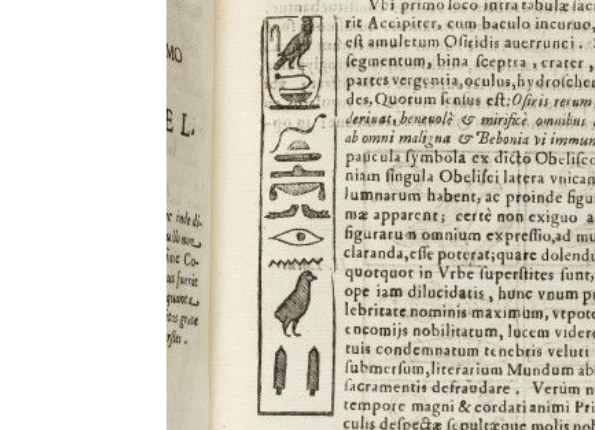 MO
E L.
inde di-
Co-
fuerit
grate
Vbi primo loco intra tabulæ
rit Accipiter, cum baculo incuruo,
est amuletum Osiridis auerrunci.
segmentum, bina sceptra, crater,
partes vergentia, oculus, hydrosche
des. Quorum sensus est: Osiris rerum
deriuat, beneuolè & mirificè omnibus
ab omni maligna & Bebonia vi immun
paucula symbola ex dicto Obelisco
niam singula Obelisci latera vnicam
lumnarum habent, ac proinde figu
mæ apparent; certè non exiguo a
figurarum omnium expressio, ad mu
claranda, esse poterat; quare dolendu
quotquot in Vrbe superstites sunt,
ope iam dilucidatis, hunc vnum p
lebritate nominis maximum, vtpote
encomijs nobilitatum, lucem videre
tuis condemnatum tenebris veluti
submersum, literarium Mundum ab
sacramentis defraudare. Verùm n
tempore magni & cordati animi Pri
culis despectæ sepultæque molis nob